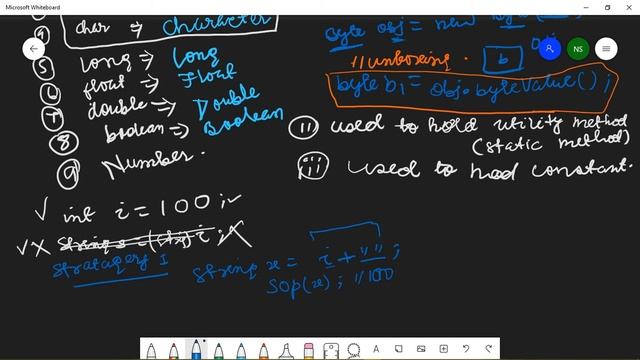 Microsoft Whiteboard
4 char => Character
5 long => Long
6 float => Float
7 double => Double
8 boolean => Boolean
9 Number.
✓ int i = 100;
✓ X String s = (String) i; X
Stratagery 1
String x = i + "";
Sop(x); // 100
byte obj = new byte
// unboxing. b
NS
byte b1 = obj.byteValue();
ii used to hold utility method
(static method)
iii used to hod constant.